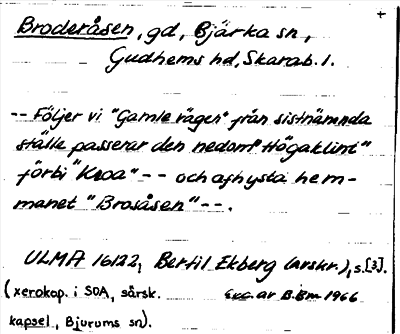 +
Broderåsen, gd, Bjärka sn,
Gudhems hd, Skarab. l.
-- Följer vi "Gamle vägen" från sistnämnda
ställe passerar den nedom "Högaklint"
förbi "Kroa" -- och afhysta hem-
manet "Brosåsen" --.
ULMA 16122, Bertil Ekberg (avskr.), s. [3].
(xerokop. i SOA, särsk.
Exc. av B.Em 1966
kapsel, Bjurums sn).